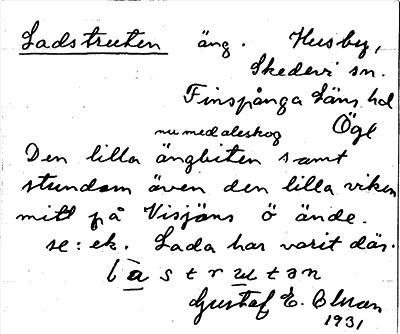 Ladstruten äng. Husby,
Skedevi sn.
Finspånga läns hd
Ögl
nu med aleskog
Den lilla ängbiten samt
stundom även den lilla viken
mitt på Visjöns ö ände.
se: ek. Lada har varit där.
l a s t r u t ə n
Gustaf E. Elman
1931